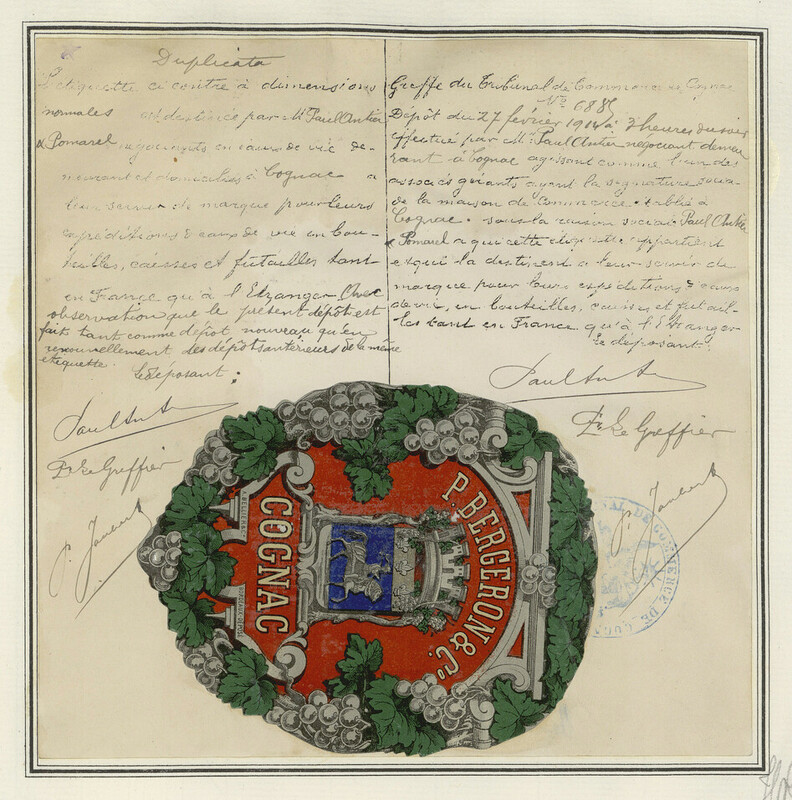 Duplicata
L'étiquette ci contre à dimensions
normales est destinée par Mr Paul Antier
& Pomarel négociants en eaux de vie de-
meurant et domiciliés à Cognac a
leur servir de marque pour leurs
expéditions d'eaux de vie en bou-
teilles, caisses et futailles tant
en France qu'à l'Etranger Avec
observation que le présent dépôt est
fait tant comme dépot nouveau qu'en
renouvellement des dépôts antérieurs de la même
etiquette.
Le déposant :
Paul Ant
Le Greffier
P. Jaubert
Greffe du Tribunal de Commerce de Cognac
No 688
Dépôt du 27 février 1914 à 3 heures du soir
effectué par M. Paul Antier négociant demeu
rant à Cognac agissant comme l'un des
associés gérants ayant la signature socia-
de la maison de Commerce établie à
Cognac sous la raison sociale Paul Antier
& Pomarel a qui cette étiquette appartient
et qui la destinent a leur servir de
marque pour leurs expéditions d'eaux
de vie, en bouteilles, caisses et futail-
les tant en France qu'à l'étranger
Le deposant :
Paul Ant
Le Greffier
P. Jaubert
P. BERGERON & Co
COGNAC
DE COMMERCE DE